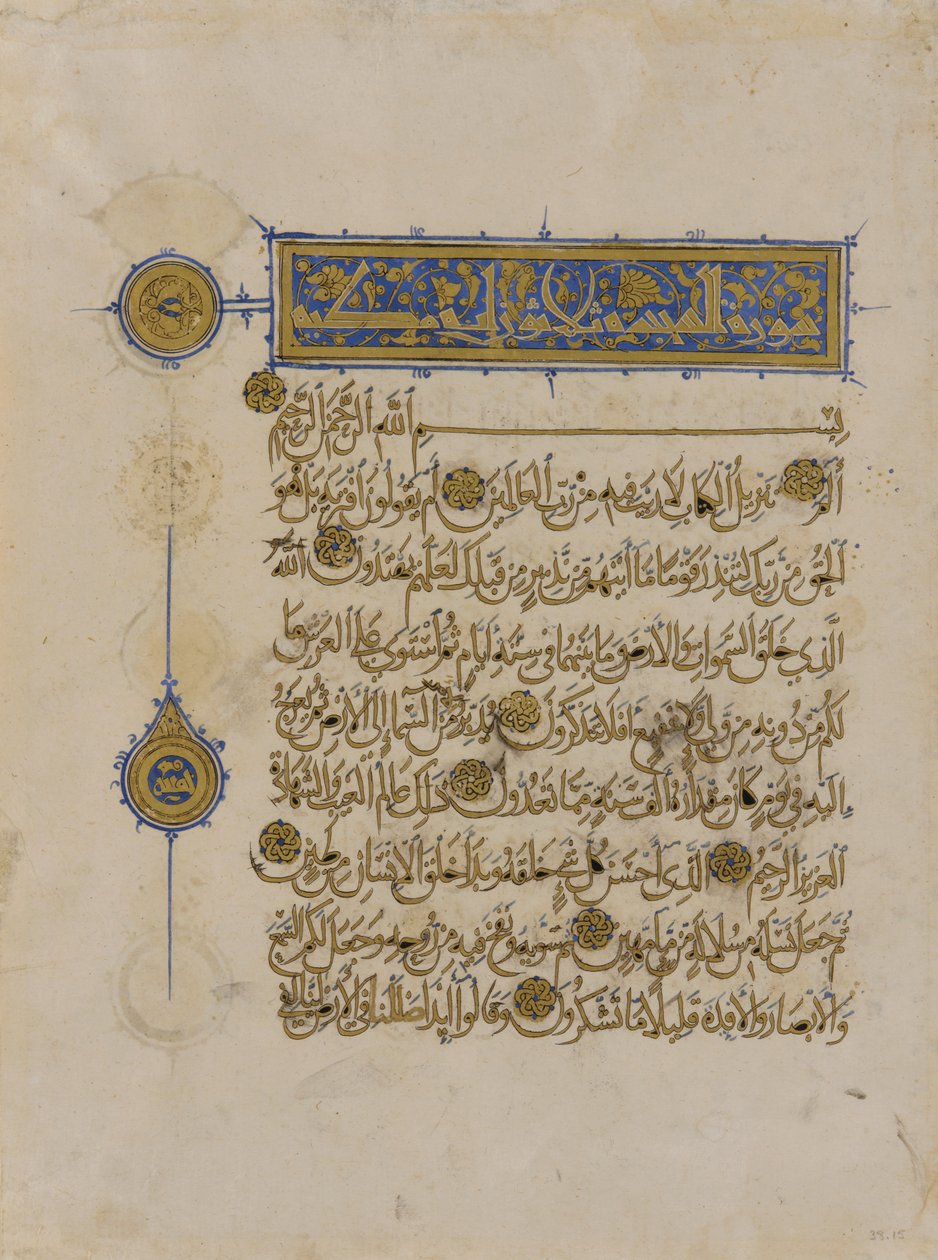 سورة السجدة ثلثون اية مكية
بِسْمِ ٱللَّهِ ٱلرَّحْمَٰنِ ٱلرَّحِيمِ
الٓمٓ تنزيل ٱلكتاب لا ريب فيه من رب ٱلعالمين أم يقولون ٱفتريه بل هو
ٱلحق من ربك لتنذر قوما ما أتيهم من نذير من قبلك لعلهم يهتدون ٱلله
ٱلذي خلق ٱلسموات وٱلأرض وما بينهما في ستة أيام ثم ٱستوى على ٱلعرش ما
لكم من دونه من ولي ولا شفيع أفلا تتذكرون يدبر ٱلأمر من ٱلسماء إلى ٱلأرض ثم يعرج
إليه في يوم كان مقداره ألف سنة مما تعدون ذلك عالم ٱلغيب وٱلشهادة
ٱلعزيز ٱلرحيم ٱلذي أحسن كل شيء خلقه وبدأ خلق ٱلإنسان من طين
ثم جعل نسله من سلالة من ماء مهين ثم سويه ونفخ فيه من روحه وجعل لكم ٱلسمع
وٱلأبصار وٱلأفئدة قليلا ما تشكرون وقالوا أئذا ضللنا في ٱلأرض أئنا لفي
38.15